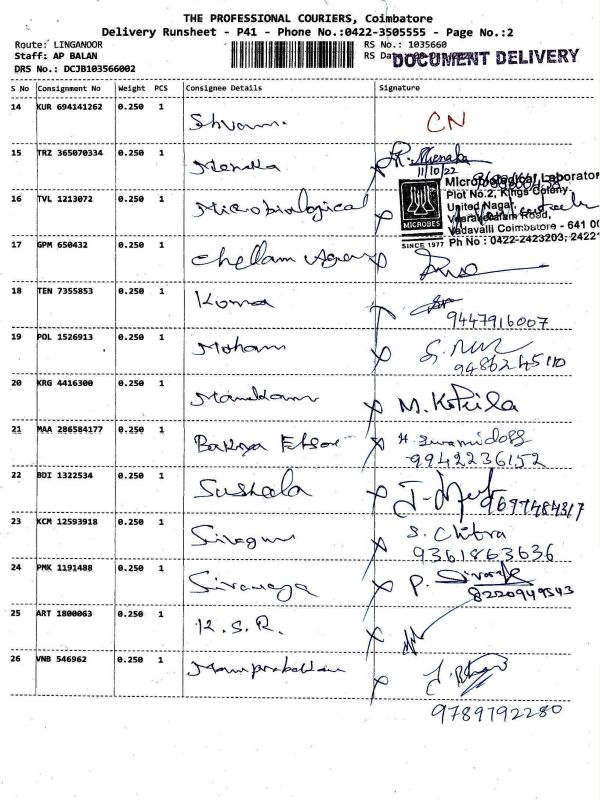 THE PROFESSIONAL COURIERS, Coimbatore
Delivery Runsheet - P41 - Phone No.:0422-3505555 - Page No.:2
Route: LINGANOOR
Staff: AP BALAN
DRS No.: DCJB103566002
RS No.: 1035660
RS Da
DOCUMENT DELIVERY
S No Consignment No Weight PCS Consignee Details Signature
14 KUR 694141262 0.250 1 CN
15 TRZ 365070334 0.250 1 Menaka Menaka
11/10/22
16 TVL 1213072 0.250 1 Microbiological
Microbiological Laborator
Plot No.2, Kings Colony,
United Nagar,
Road,
Vadavalli Coimbatore - 641 0
Ph No : 0422-2423203, 2422
MICROBES
SINCE 1977
17 GPM 650432 0.250 1 Chellam
18 TEN 7355853 0.250 1 Kuma
9447916007
19 POL 1526913 0.250 1 Moham
9486245110
20 KRG 4416300 0.250 1 M. Kokila
21 MAA 286584177 0.250 1
9942236152
22 BDI 1322534 0.250 1 Susheela
9697484317
23 KCM 12593918 0.250 1 S. Chitra
9361863636
24 PMK 1191488 0.250 1 P.
8220949543
25 ART 1800063 0.250 1 K.S.R.
26 VNB 546962 0.250 1
9789792280